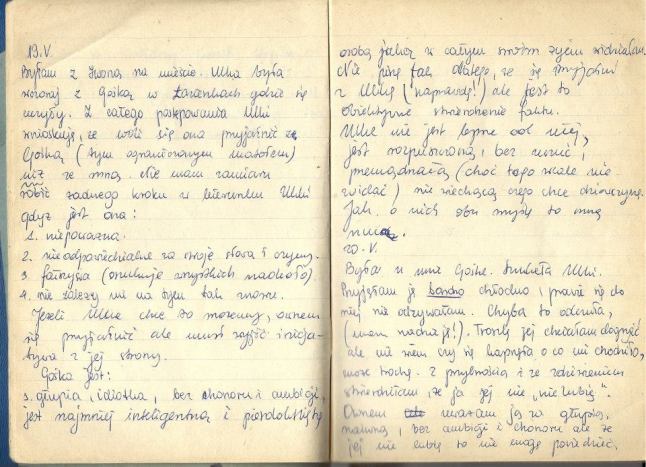 19.V.
Byłam z Iwoną na mieście. Ulka była
wczoraj z Gośką w Łazienkach gdzie się
uczyły. Z całego postępowania Ulki
wnioskuję, że woli się ona przyjaźnić z
Gośką (tym ograniczonym matołem)
niż ze mną. Nie mam zamiaru
robić żadnego kroku w kierunku Ulki
gdyż jest ona:
1. niepoważna.
2. nieodpowiedzialna za swoje słowa i czyny.
3. fałszywa (
4. nie zależy mi na tym tak znowu.
Jeżeli Ulka chce to możemy, owszem
się przyjaźnić ale musi wyjść inicja-
tywa z jej strony.
Gośka jest:
głupia, idiotka, bez honoru i ambicji,
jest najmniej inteligentną i
osobą jaką w całym swoim życiu widziałam.
Nie piszę tak dlatego, że się przyjaźni
z Ulką (naprawdę!) ale jest to
obiektywne stwierdzenie faktu.
Ulka nie jest lepsza od niej,
jest rozpuszczona, bez uczuć,
przemądrzała (choć tego wcale nie
widać) nie wiedzącą czego chce dziewczyną.
Jak o nich obu myślę to mnie
20.V.
Była u mnie Gośka. Szukała Ulki.
Przyjęłam ją bardzo chłodno i prawie się do
niej nie odzywałam. Chyba to odczuła,
(mam nadzieję!). Trochę jej chciałam dogryźć
ale nie wiem czy się kapnęła o co mi chodziło,
może trochę. Z przykrością i ze zdziwieniem
stwierdziłam, że ja jej nie „nie lubię”.
Owszem uważam ją za głupią,
naiwną, bez ambicji i honoru ale że
jej nie lubię to nie mogę powiedzieć.